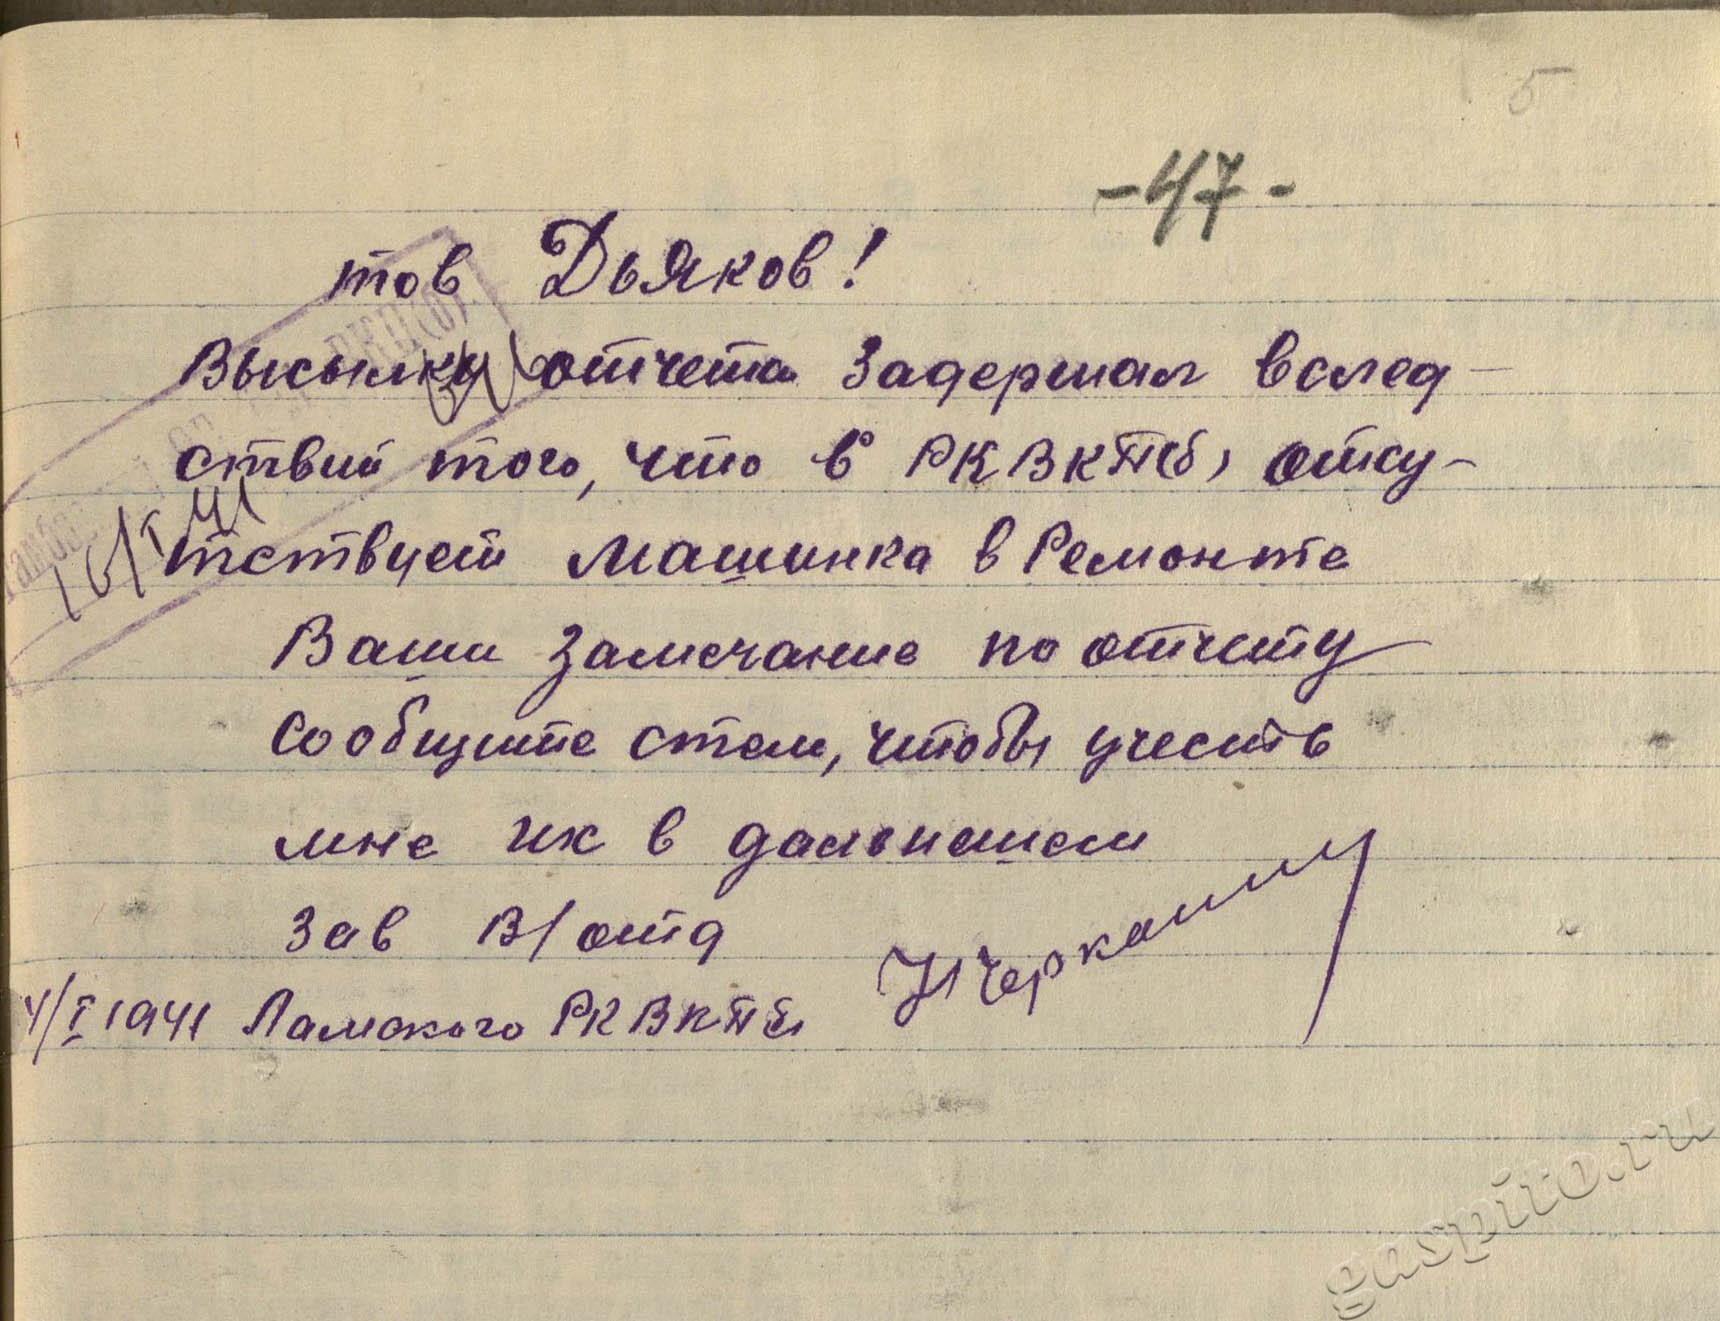 5
-47-
тов Дьяков!
Высылку отчета задержал вслед-
ствии того, что в РК ВКП(б) отсу-
тствует машинка в Ремонте
Ваши замечание по отчету
сообщите стем, чтобы учесть
мне их в дальнишем
Зав В/отд
4/I 1941 Ламского РК ВКПб
16/I 41
ВКП(б)
gaspito.ru